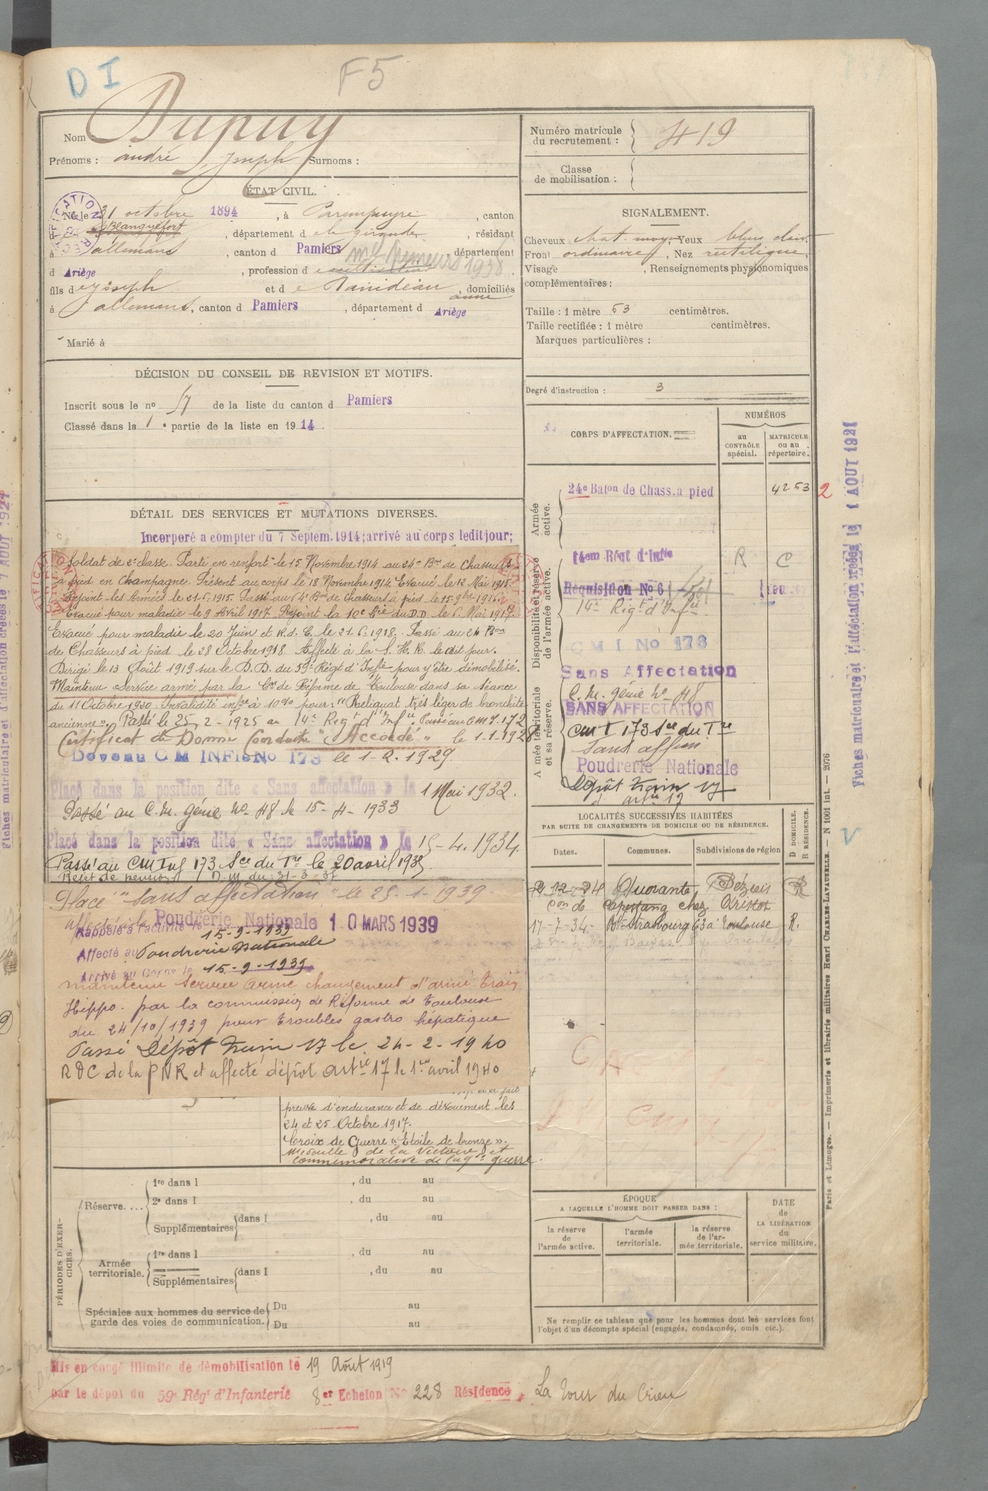 D I
F5
Nom Dupuy
Prénoms : andré Joseph Surnoms :
Numéro matricule du recrutement : 419
Classe de mobilisation :
ÉTAT CIVIL.
Né le 31 octobre 1894, à Parempuyre, canton
d Blanquefort, département de la gironde, résidant
à allemans, canton d Pamiers, département
d Ariège, profession de cultivateur
1938
fils de Joseph et de anne, domiciliés
à allemans, canton d Pamiers, département d Ariège
Marié à
SIGNALEMENT.
Cheveux chat. moy. Yeux bleus clairs
Front ordinaire, Nez rectiligne,
Visage , Renseignements physionomiques
complémentaires :
Taille : 1 mètre 63 centimètres.
Taille rectifiée : 1 mètre centimètres.
Marques particulières :
Degré d'instruction : 3
DÉCISION DU CONSEIL DE REVISION ET MOTIFS.
Inscrit sous le no 57 de la liste du canton d Pamiers
Classé dans la 1e partie de la liste en 1914.
DÉTAIL DES SERVICES ET MUTATIONS DIVERSES.
Incorporé a compter du 7 Septem. 1914; arrivé au corps ledit jour;
Soldat de 2e classe. Parti en renfort le 15 Novembre 1914 au 24e Bon de Chasseurs
à pied en Champagne. Présent au corps le 18 Novembre 1914. Evacué le 12 Mai 1915.
Rejoint les Armées le 21.6.1915. Passé au 4e Bon de Chasseurs à pied le 15 9bre 1916.
Evacué pour maladie le 9 Avril 1917. Rejoint la 10e Cie du D.D. le 6 Mai 1917.
Evacué pour maladie le 20 Juin et R.d.C. le 21.6.1918. Passé au 24 Bon
de Chasseurs à pied le 28 Octobre 1918. Affecté à la S.H.R. le dit jour.
Dirigé le 13 Août 1919 sur le D.D. du 59e Régt d'Infie pour y être démobilisé.
Maintenu Service armé par la Con de Réforme de Toulouse dans sa séance
du 11 Octobre 1920. Invalidité infre à 10% pour : "Reliquat très léger de bronchite
ancienne". Passé le 25-2-1925 au 14e Reg d'Infie Passé au C.M.I. 172
Certificat de Bonne Conduite "Accordé" le 1.1.1928
Devenu C M INFie No 173 le 1-2.1929
Placé dans la position dite « Sans affectation » le 1 Mai 1932.
Passé au C.M. génie No 48 le 15-4-1933
Placé dans la position dite « Sans affectation » le 15-4.1934.
Passé au CM Inf 173 Sce du Tre le 20 avril 1935
Placé "Sans affectation" le 25-1-1939.
affecté à la Poudrerie Nationale 10 MARS 1939
Rappelé à l'activité le 15-9-1939
Affecté au Poudrerie Nationale
Arrivé au Corps le 15-9-1939
maintenu service armé changement d'arme Train
Hippo. par la commission de Réforme de Toulouse
du 24/10/1939 pour troubles gastro hépatique
Passé Dépôt Train 17 le 24-2-1940
RDC de la PNR et affecté dépôt Artrie 17 le 1er avril 1940
preuve d'endurance et de dévouement les
24 et 25 Octobre 1917.
Croix de Guerre « Etoile de bronze ».
Médaille de la Victoire et
commémorative de la gde guerre
CORPS D'AFFECTATION.
NUMÉROS
au CONTRÔLE spécial.
MATRICULE ou au répertoire.
Armée active.
24e Baton de Chass. a pied 4253 2
Disponibilité et réserve de l'armée active.
14em Régt d'Infie R C
Réquisition No 6
14e Régt d'Infie
C M I No 173
Sans Affectation
Armée territoriale et sa réserve.
C.M. génie No 48
SANS AFFECTATION
CM I 173 Sce du Tre
Sans affon
Poudrerie Nationale
Dépôt Train 17
d° artie 17
LOCALITÉS SUCCESSIVES HABITÉES
PAR SUITE DE CHANGEMENTS DE DOMICILE OU DE RÉSIDENCE.
Dates. Communes. Subdivisions de région D DOMICILE. R RÉSIDENCE.
Quarante Béziers R
Con de Capestang chez
17-7-34- Bd Strasbourg 63 à Toulouse R.
PÉRIODES D'EXERCICES.
Réserve....
1re dans l , du au
2e dans l , du au
Supplémentaires dans l , du au
Armée territoriale.
1re dans l , du au
Supplémentaires dans l , du au
Spéciales aux hommes du service de garde des voies de communication.
Du au
Du au
ÉPOQUE
A LAQUELLE L'HOMME DOIT PASSER DANS :
la réserve de l'armée active.
l'armée territoriale.
la réserve de l'armée territoriale.
DATE de LA LIBÉRATION du service militaire.
Ne remplir ce tableau que pour les hommes dont les services font
l'objet d'un décompte spécial (engagés, condamnés, omis etc.).
Mis en congé illimité de démobilisation le 19 Août 1919
par le dépôt du 59e Régt d'Infanterie 8er Echelon No 228 Résidence, La Tour du Crieu
Fiches matriculaire et d'affectation créées le 1 AOUT 1921
Paris et Limoges. — Imprimerie et librairie militaires Henri CHARLES-LAVAUZELLE. — N 1001 int. — 2076
V